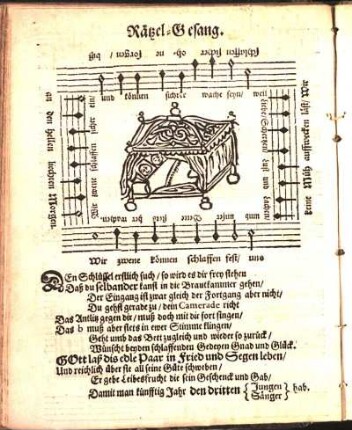 Rätzel-Gesang.
Schlaffen sicher oh- ne sorgen / biß
und können sichre wache seyn / weil
an den hellen liechten Morgen.
Wir zwene schlaffen sicher ein /
Wir
keine Müh auffwecken läst /
und unser Vetter
Wir zwene können schlaffen fest / und
DEn Schlüssel erstlich such / so wird es dir frey stehen
Daß du selbander kanst in die Brautkammer gehen /
Der Eingang ist zwar gleich der Fortgang aber nicht /
Du gehst gerade zu / dein Camerade nicht
Das Antlitz gegen dir / muß doch mit dir fort singen /
Das b muß aber stets in ewer Stimme klingen /
Geht umb das Bett zugleich und wieder so zurück /
Wünscht beyden schlaffenden Gedeyen Gnad und Glück.
GOtt laß dis edle Paar in Fried und Segen leben /
Und reichlich über sie all seine Güte schweben /
Er gebe Leibesfrucht die sein Geschenck und Gab /
Damit man künfftig Jahr den dritten { Jungen Sänger } hab.